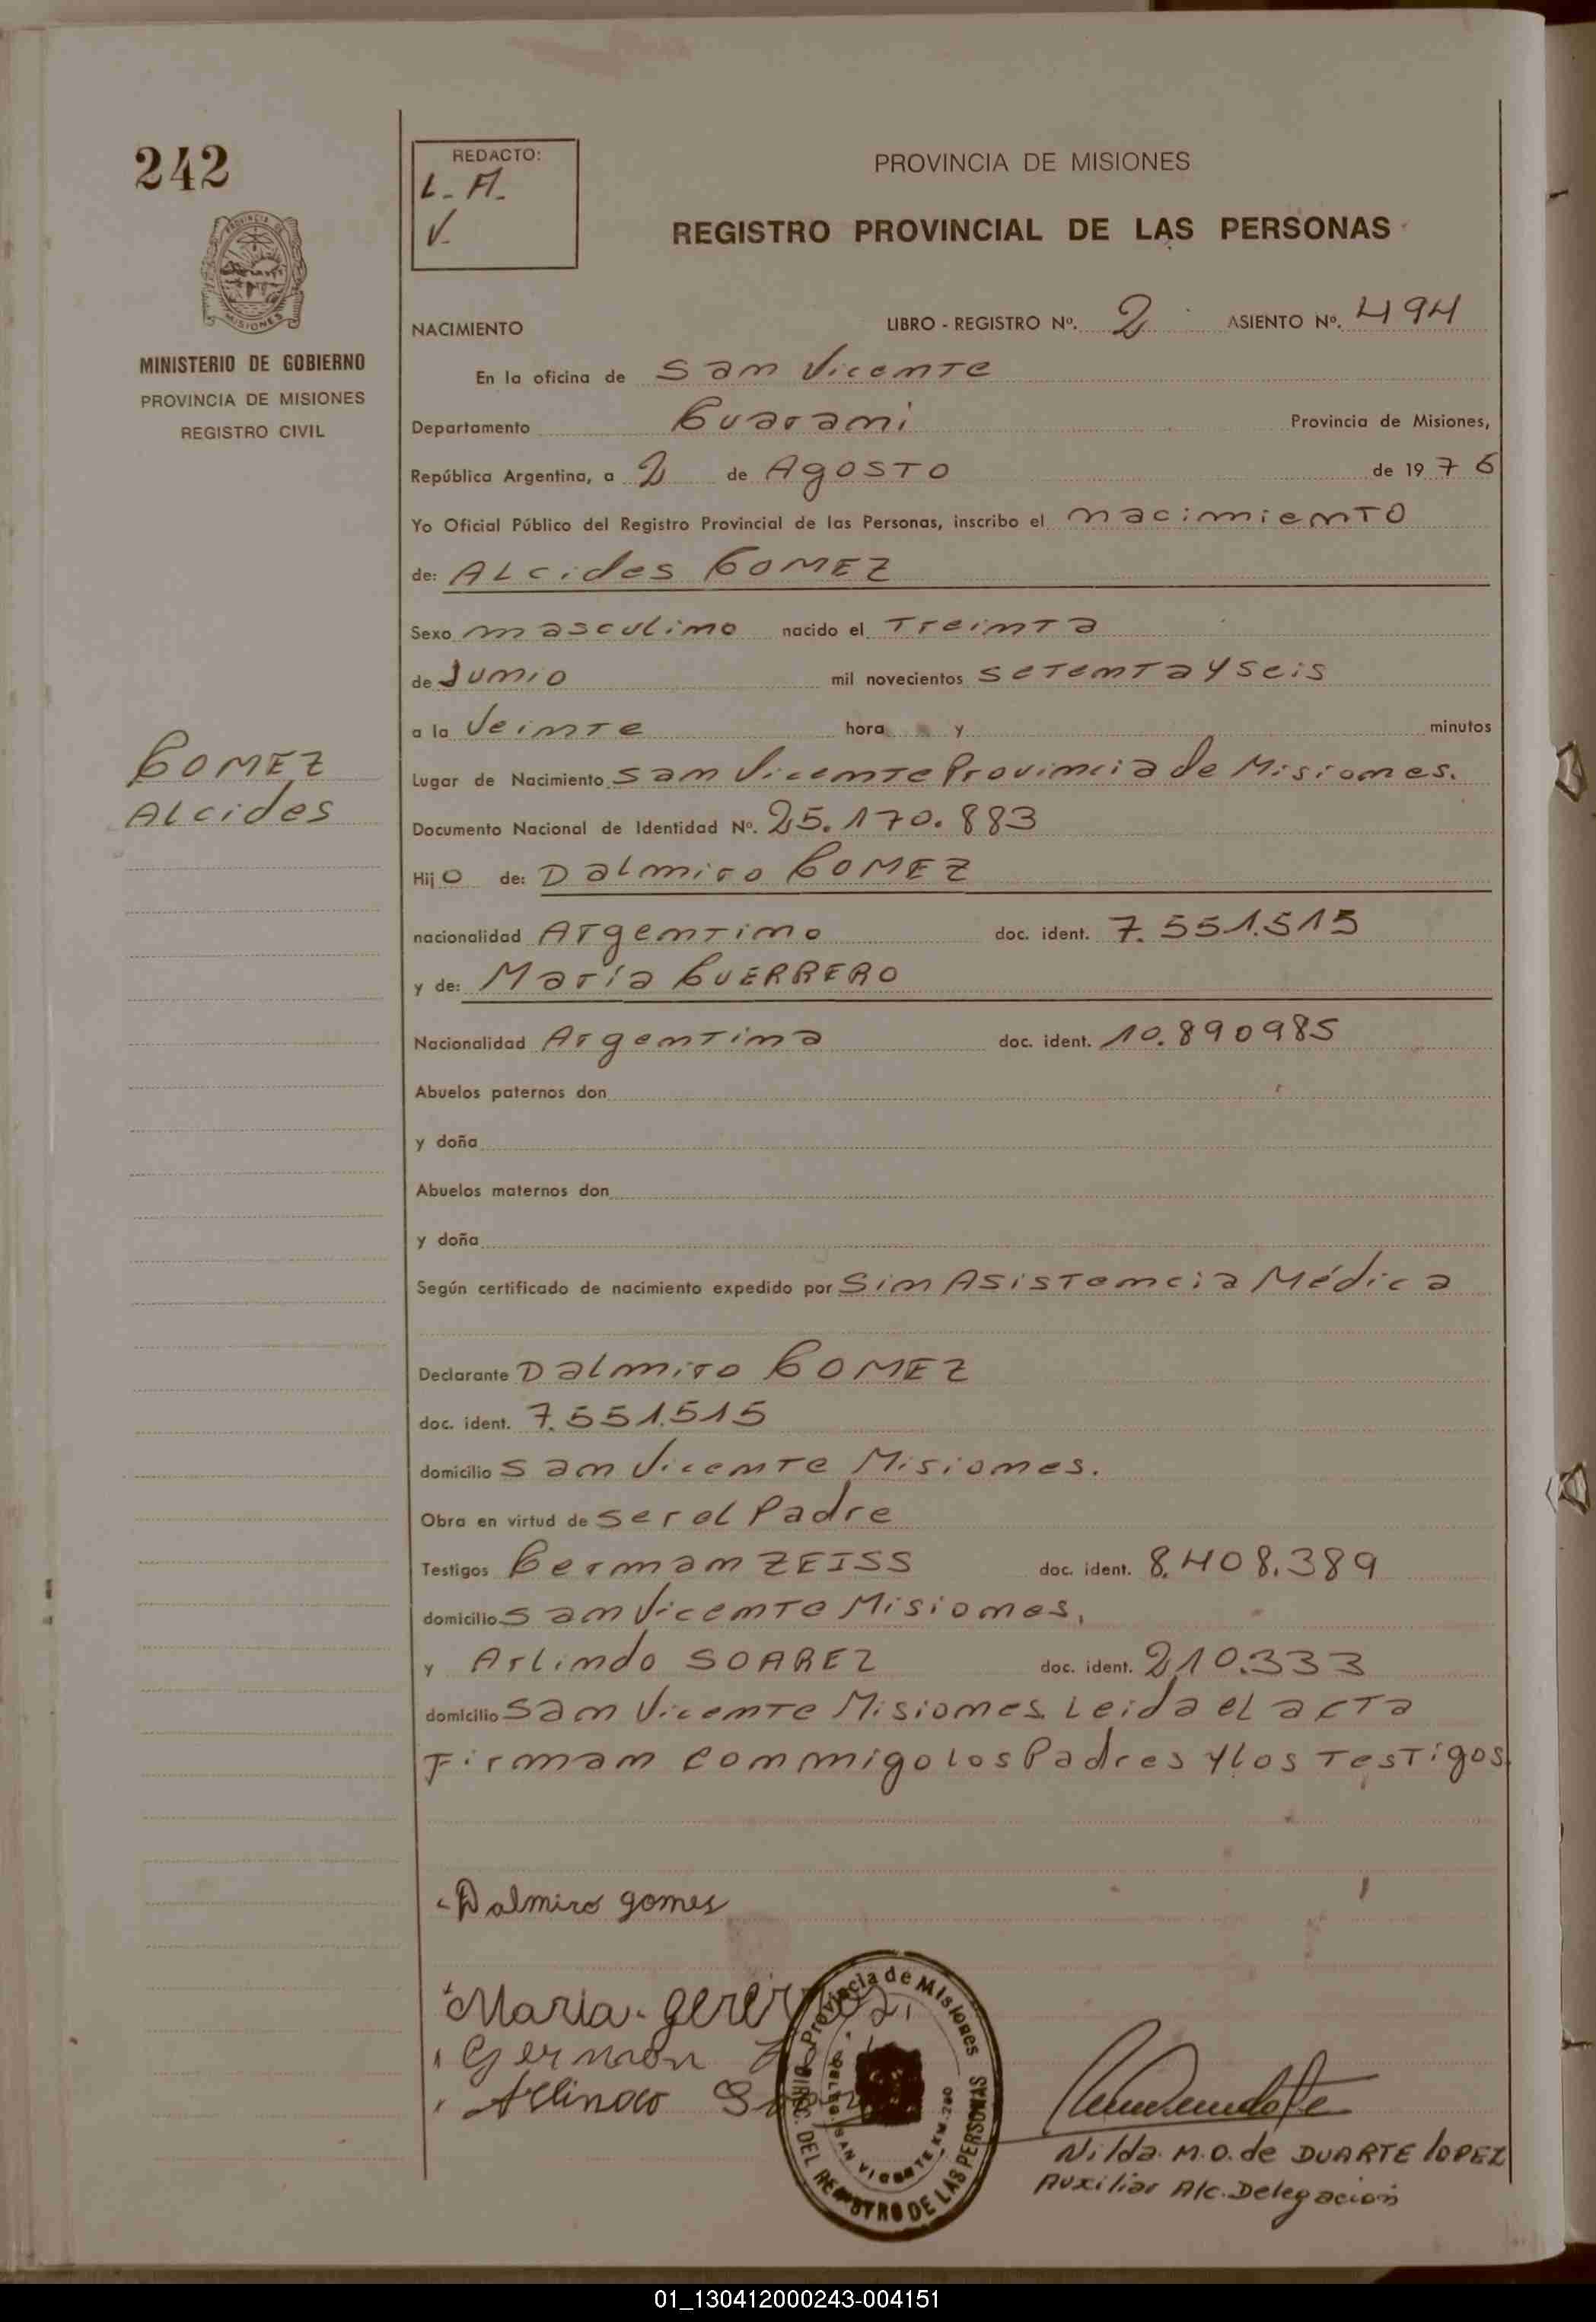 242
REDACTO:
L. A.
V.
PROVINCIA DE MISIONES
REGISTRO PROVINCIAL DE LAS PERSONAS
PROVINCIA
MISIONES
MINISTERIO DE GOBIERNO
PROVINCIA DE MISIONES
REGISTRO CIVIL
NACIMIENTO LIBRO - REGISTRO Nº. 2 ASIENTO Nº. 494
En la oficina de San Vicente
Departamento Guarani Provincia de Misiones,
República Argentina, a 2 de Agosto de 1976
Yo Oficial Público del Registro Provincial de las Personas, inscribo el nacimiento
de: Alcides GOMEZ
Sexo masculino nacido el Treinta
de Junio mil novecientos setenta y seis
a la Veinte hora y minutos
GOMEZ
Alcides
Lugar de Nacimiento San Vicente Provincia de Misiones.
Documento Nacional de Identidad Nº. 25.170.883
Hijo de: Dalmiro GOMEZ
nacionalidad Argentino doc. ident. 7.551.515
y de: María GUERRERO
Nacionalidad Argentina doc. ident. 10.890985
Abuelos paternos don
y doña
Abuelos maternos don
y doña
Según certificado de nacimiento expedido por Sin Asistencia Médica
Declarante Dalmiro GOMEZ
doc. ident. 7.551.515
domicilio San Vicente Misiones.
Obra en virtud de ser el Padre
Testigos German ZEISS doc. ident. 8.408.389
domicilio San Vicente Misiones,
y Arlindo SOAREZ doc. ident. 210.333
domicilio San Vicente Misiones. Leida el acta
Firman conmigo los Padres y los Testigos.
Dalmiro gomes
Maria
German
Arlindo
Provincia de Misiones
DEL REGISTRO DE LAS PERSONAS
SAN VICENTE KM. 280
Nilda. M. O. de DUARTE LOPEZ
Auxiliar A/c. Delegación
01_130412000243-004151